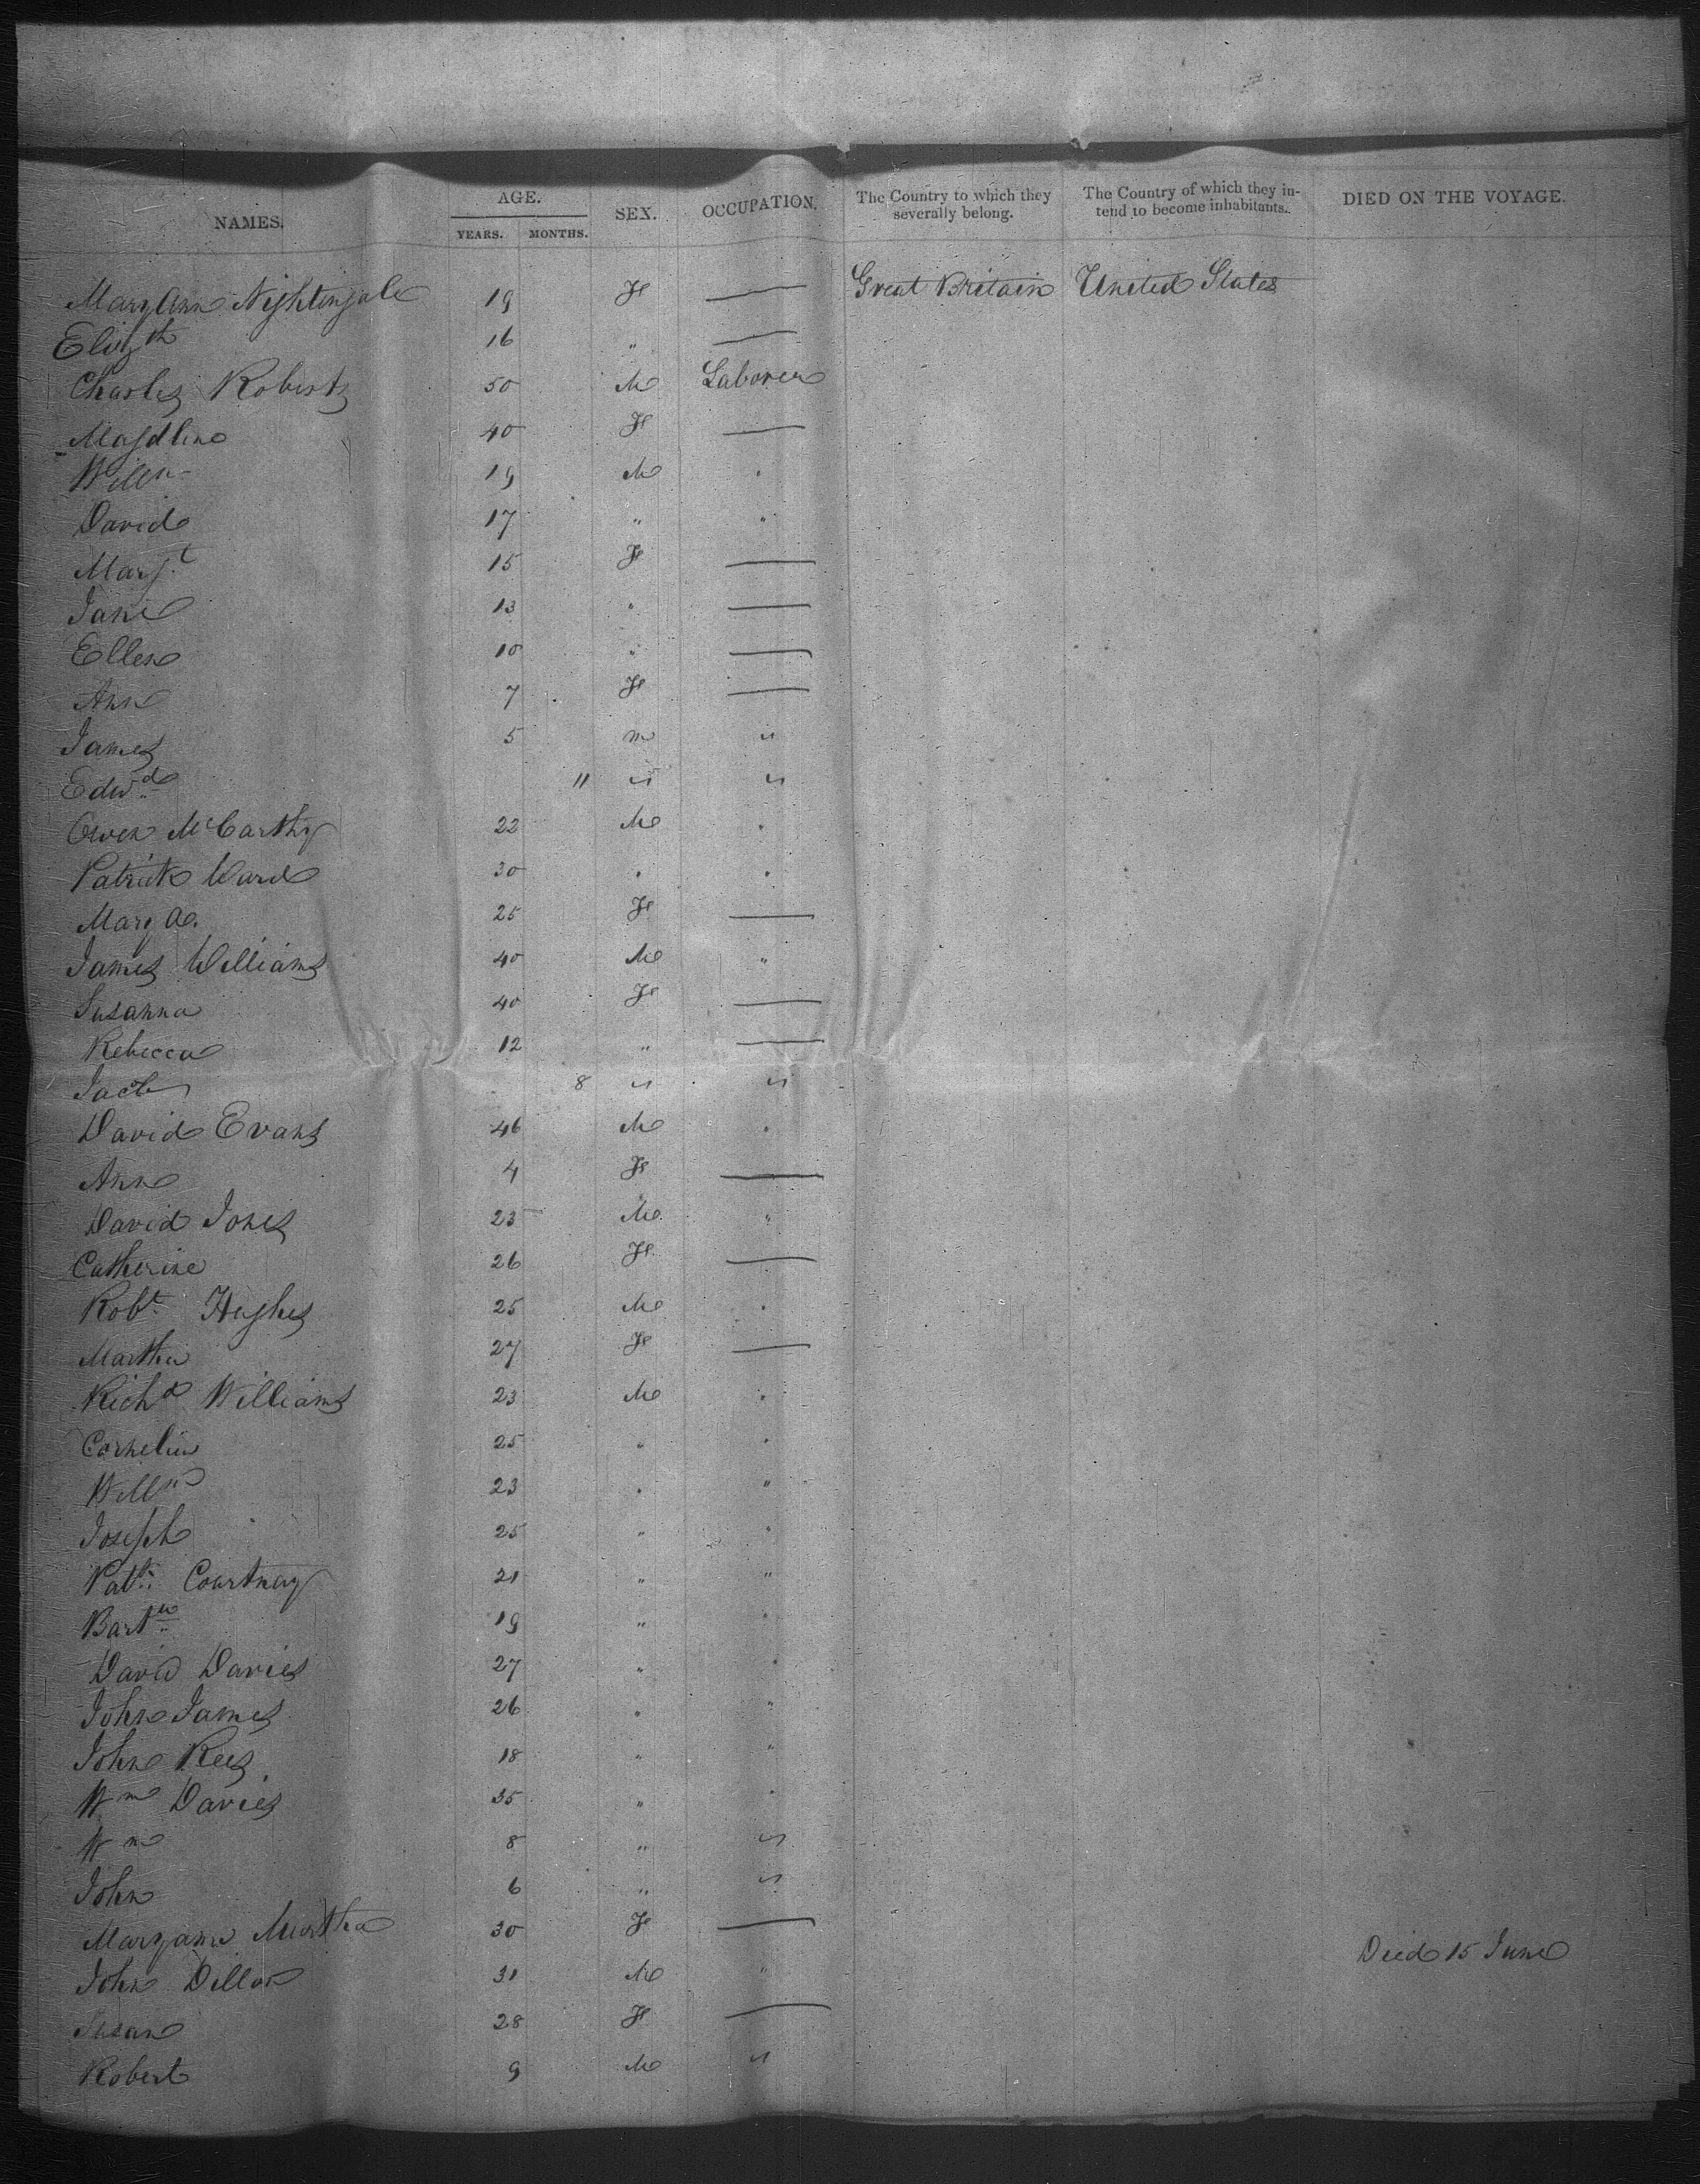 NAMES. AGE. YEARS. MONTHS. SEX. OCCUPATION. The Country to which they severally belong. The Country of which they intend to become inhabitants. DIED ON THE VOYAGE.
Mary Ann Nightingale 19 F — Great Britain United States
Elizth 16 " —
Charles Roberts 50 M Laborer
Magdline 40 F —
Willm 19 M "
David 17 " "
Margt 15 F —
Jane 13 " —
Ellen 10 " —
Ann 7 F —
James 5 m "
Edwd 11 " "
Owen McCarthy 22 M "
Patrick Ward 30 " "
Mary A. 25 F —
James Williams 40 M "
Susanna 40 F —
Rebecca 12 " —
Jacob 8 " "
David Evans 46 M "
Ann 4 F —
David Jones 23 M "
Catherine 26 F —
Robt Hughes 25 M "
Martha 27 F —
Richd Williams 23 M "
Cornelius 25 " "
Willm 23 " "
Joseph 25 " "
Patk Courtnay 21 " "
Bartw 19 " "
David Davies 27 " "
John James 26 " "
John Rees 18 " "
Wm Davies 35 " "
Wm 8 " "
John 6 " "
Maryann Murtha 30 F —
John Dillon 31 M " Died 15 June
Susan 28 F —
Robert 9 M "